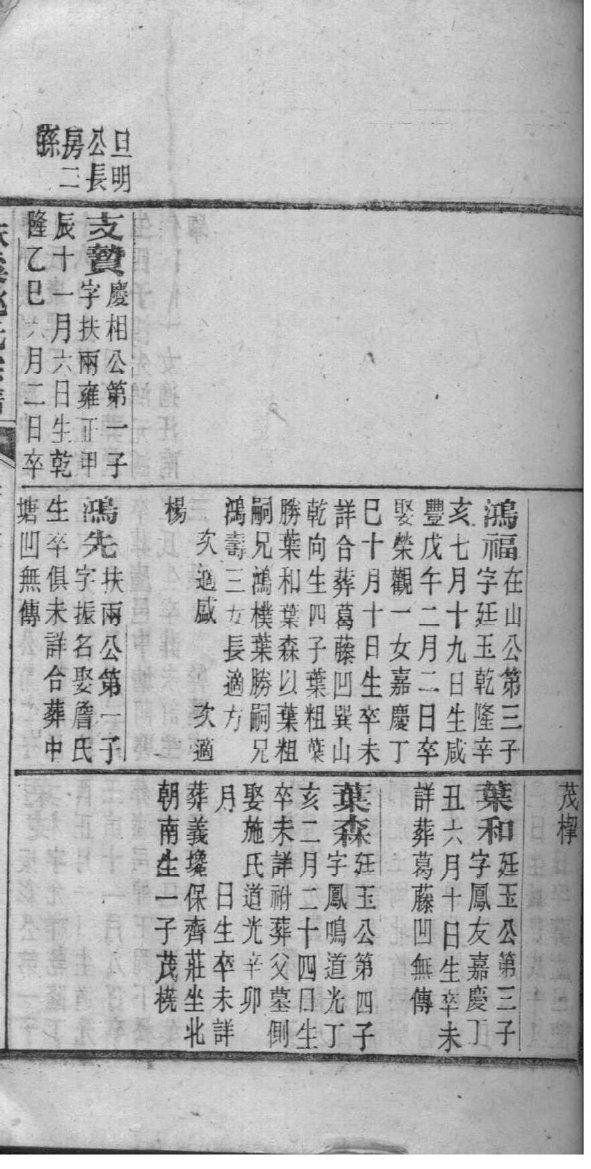 旦明
公長
房二
孫
支贊
慶相公第一子
字扶兩雍正甲
辰十一月六日生乾
隆乙巳六月二日卒
鴻福
在山公第三子
字廷玉乾隆辛
亥七月十九日生咸
豐戊午二月二日卒
娶榮觀一女嘉慶丁
巳十月十日生卒未
詳合葬葛藤凹巽山
乾向生四子葉粗葉
勝葉和葉森以葉粗
嗣兄鴻樸葉勝嗣兄
鴻壽三女長適方
次適戚　次適
楊
鴻先
扶兩公第一子
字振名娶詹氏
生卒俱未詳合葬中
塘凹無傳
茂檡
葉和
廷玉公第三子
字鳳友嘉慶丁
丑六月十日生卒未
詳葬葛藤凹無傳
葉森
廷玉公第四子
字鳳鳴道光丁
亥二月二十四日生
卒未詳祔葬父墓側
娶施氏道光辛卯
月　日生卒未詳
葬義壠保齊莊坐北
朝南生一子茂橈